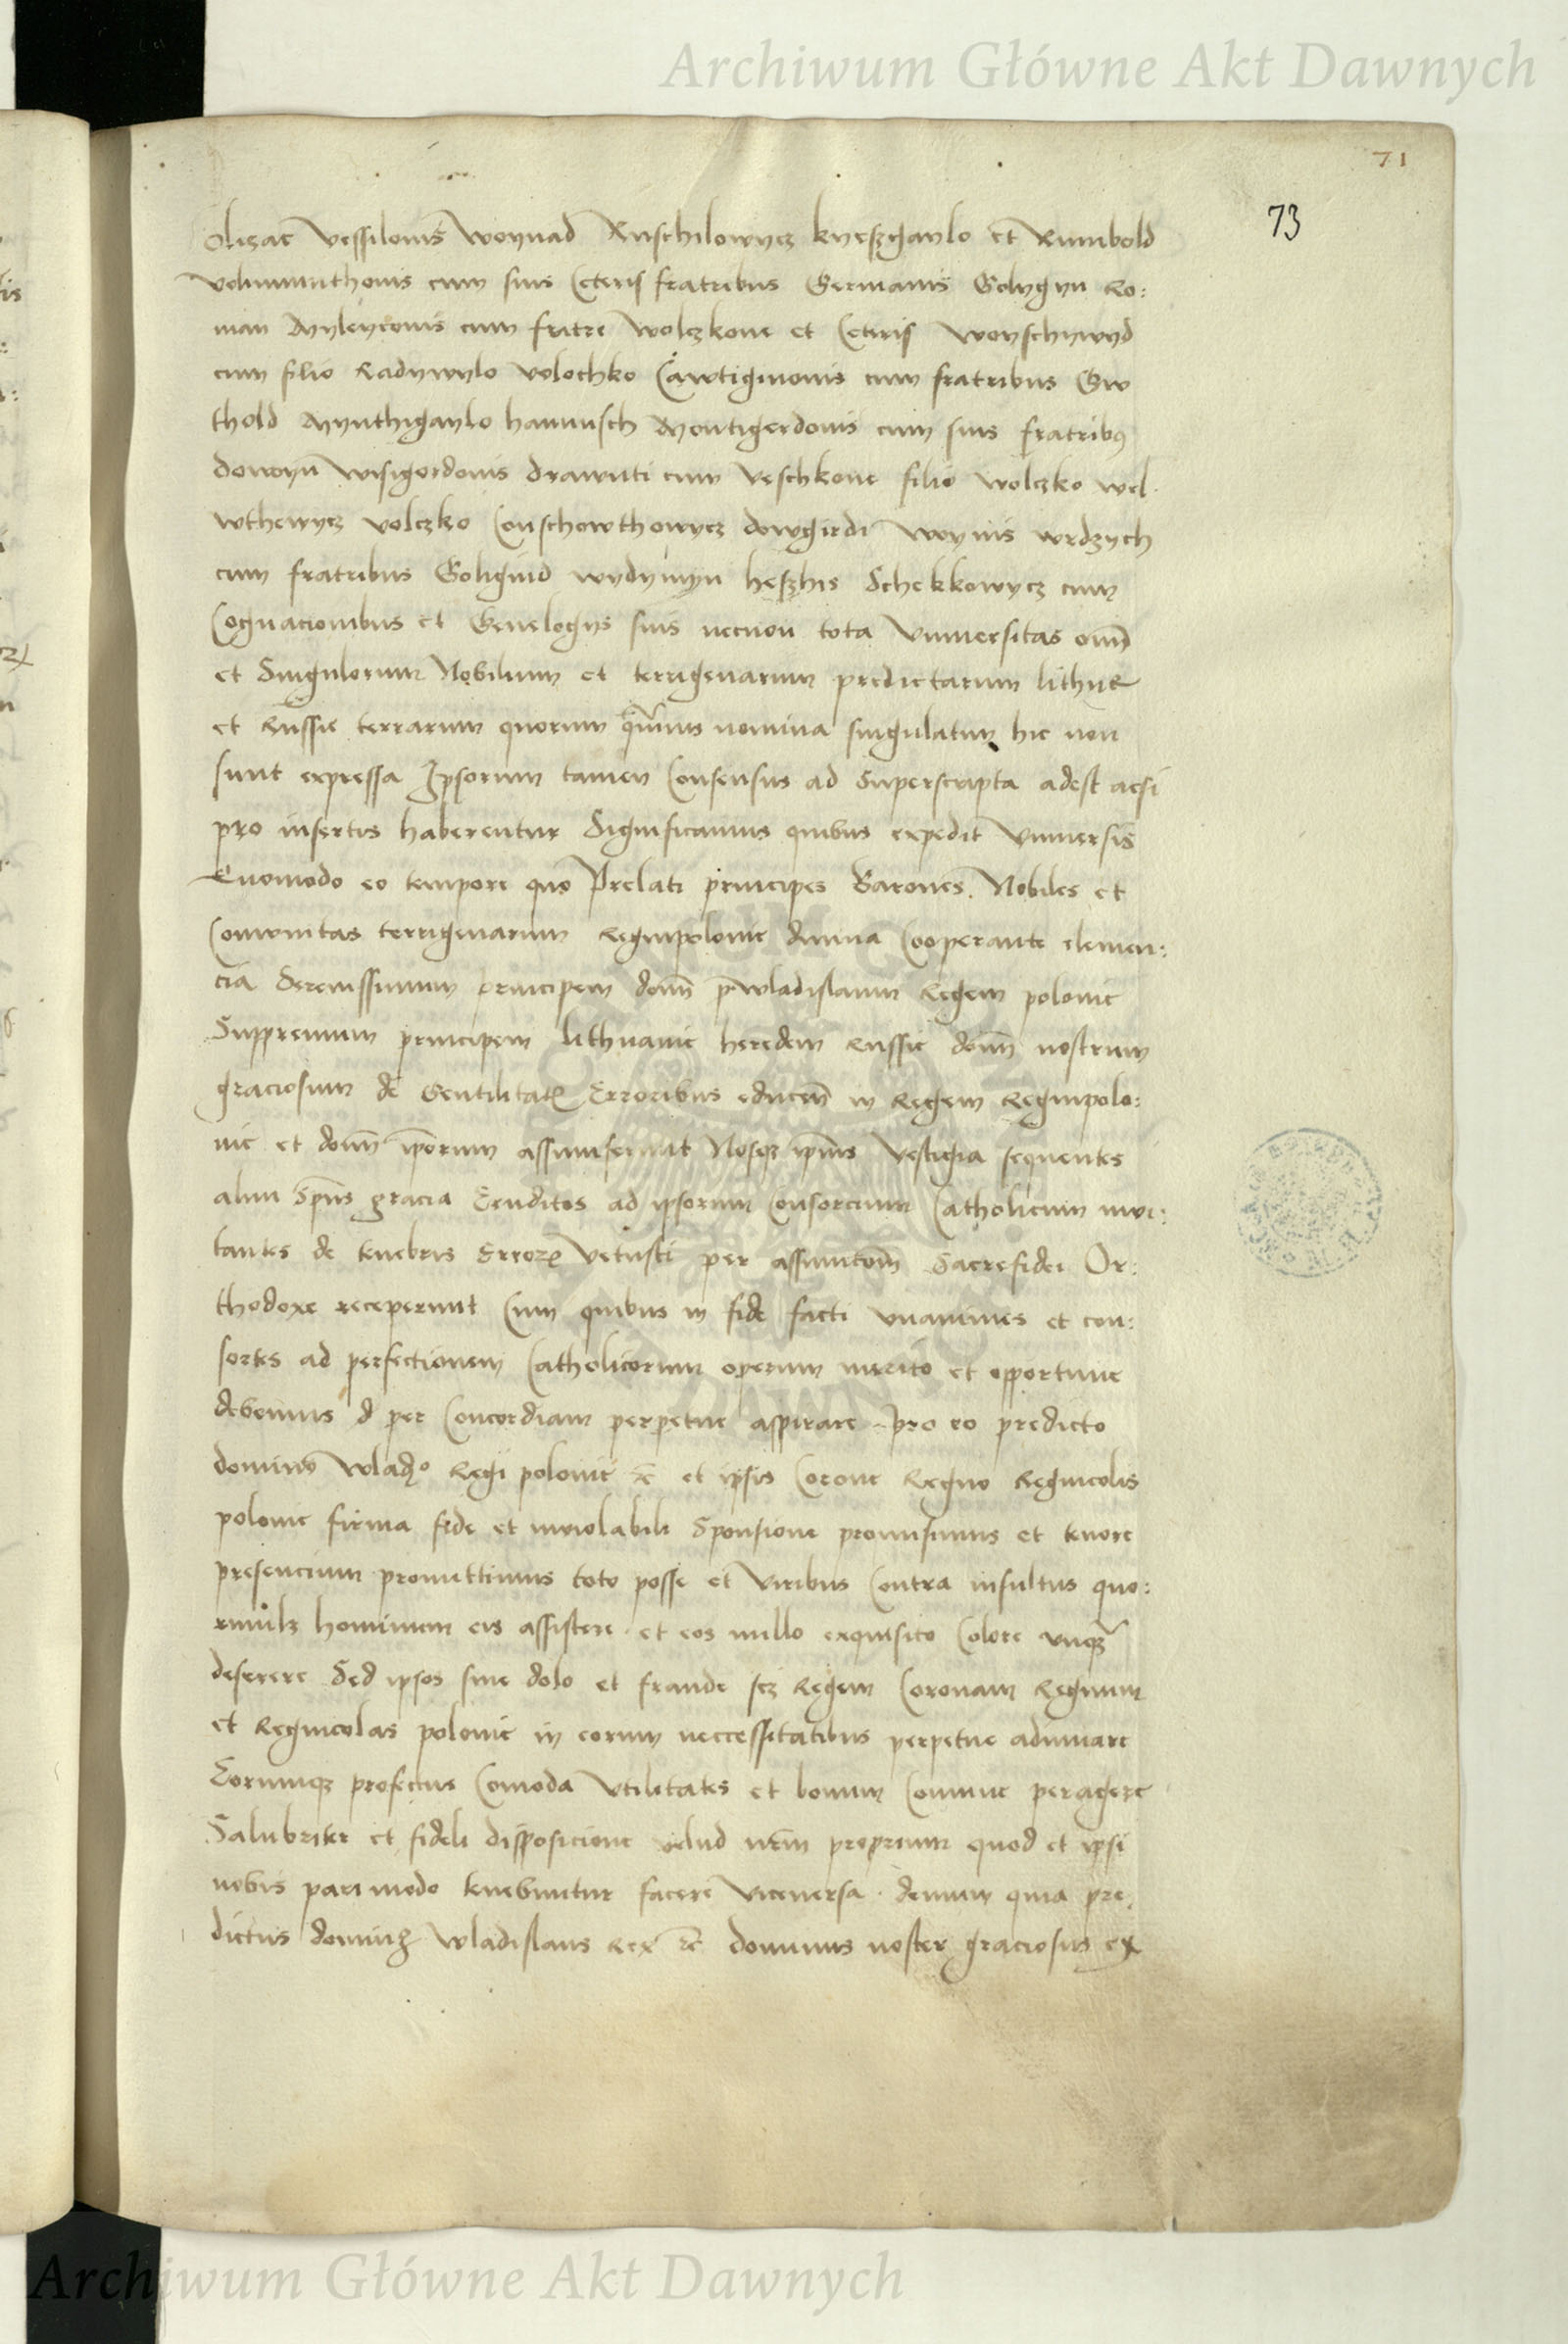 Archiwum Główne Akt Dawnych
71
73
Olizac Vessilonis Woynad Kuschilowycz knyeszganlo et Rumbold
Volimunthonis cum suis Ceteris fratribus Germanis Golygyn Ro:
man cum fratre Wolczkone et Ceteris Woyschnwyd
cum filio Radywylo Volochko Cawtiginonis cum fratribus Gw
thold Mynthiganlo hannusch Montigerdonis cum suis fratribus
dowoyn Wisigerdonis drawuti cum Veschkone filio Wolczko Wel
wthewycz Volczko Conschowthowycz dowgirdi Woynis Wrdzych
cum fratribus Goligind Wydymyn heszhis Schekkowycz cum
Cognacionibus et Genelogys suis necnon tota Vniuersitas omn̄
et Singulorum Nobilium et terrigenarum predictarum lithu
et Russie terrarum quorum q̄muis nomina singulatim hic non
sunt expressa Ipsorum tamen Consensus ad Superscripta adest acsi
pro insertis haberentur Significamus quibus expedit Vniuersis
Quomodo eo tempore quo Prelati principes Barones Nobiles et
Comunitas terrigenarum Regnipolonie diuina Cooperante clemen:
cia Serenissimum principem domn̄ p̄ Wladislaum Regem polonie
Suppremum principem lithuanie heredem Russie domn̄ nostrum
graciosum de Gentilitatꝭ Erroribus educen̄ in Regem Regnipolo:
nie et domn̄ ip̄orum assumserunt Nosqꝫ ip̄ius Vestigia sequentes
almi Sp̄us gracia Eruditos ad ipsorum Consorcium Catholicum inui:
tantes de tenebris Errorꝭ Vetusti per assumtom̄ Sacrefidei Or:
thodoxe receperunt Cum quibus in fide facti vnanimes et con:
sortes ad perfectionem Catholicorum operum merito et opportune
debemus d per Concordiam perpetue aspirare pro eo predicto
domino Wladꝭo Regi polonie ⁊c̄ et ipsis Corone Regno Regnicolis
polonie firma fide et inuiolabili Sponsione promisimus et tenore
presencium promittimus toto posse et Viribus Contra insultus quo:
rumlꝫ hominum eis assistere et eos nullo exquisito Colore vnqꝫ
deserere Sed ipsos sine dolo et fraude scꝫ Regem Coronam Regnum
et Regnicolas polonie in eorum neccessitatibus perpetue adiuuare
Eorumqꝫ profectus Comoda Vtilitates et bonum Comune peragere
Salubriter et fideli disposicione velud nr̄m proprium quod et ipsi
nobis parimodo tenebuntur facere Viceuersa demum quia pre
dictus dominꝰ Wladislaus Rex ⁊c̄ dominus noster graciosus ex
Archiwum Główne Akt Dawnych